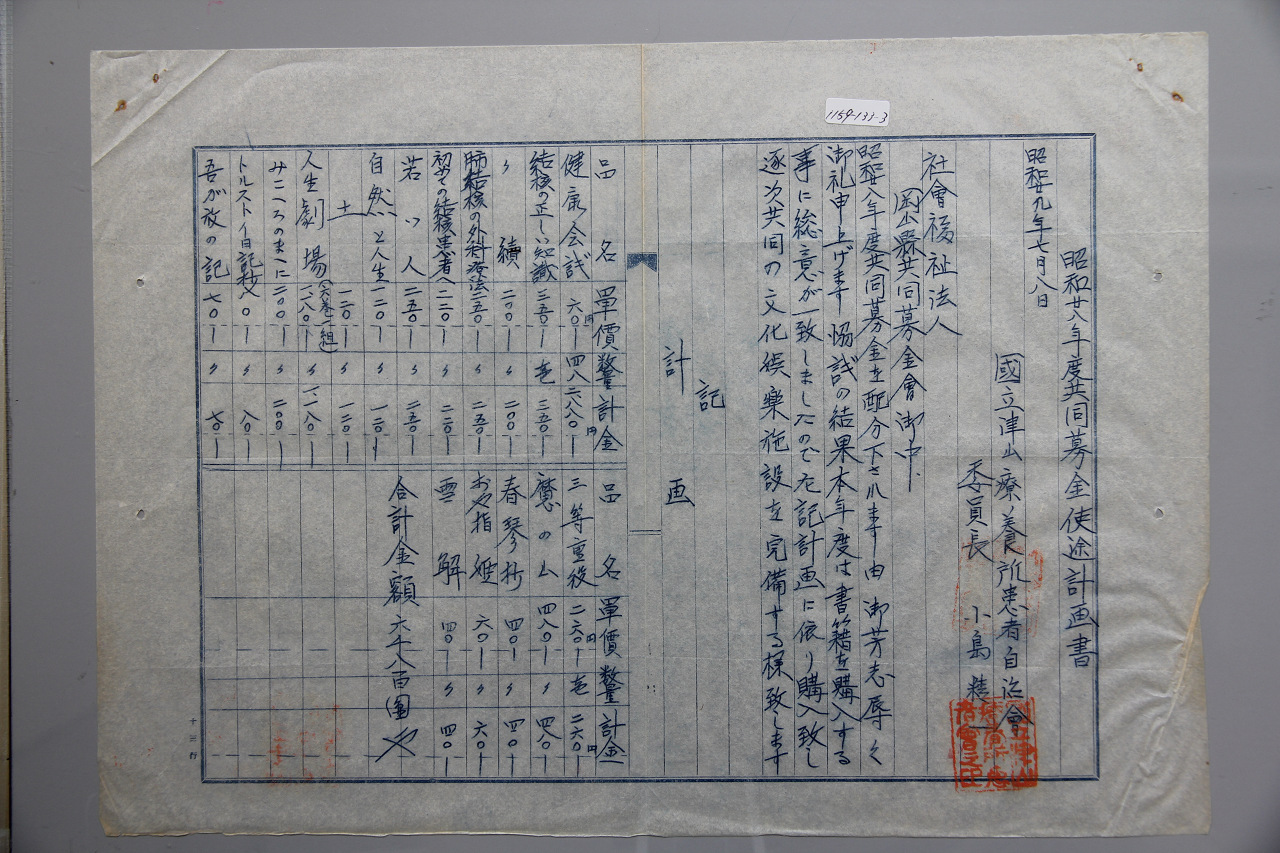 1159-133-3
昭和廿八年度共同募金使途計画書
昭和廿九年七月八日
國立津山療養所患者自治會
委員長 小島
社會福祉法人
岡山縣共同募金會御中
昭和廿八年度共同募金を配分下されます由御芳志辱く
御礼申上げます 協議の結果本年度は書籍を購入する
事に総意が一致しましたので左記計画に依り購入致し
逐次共同の文化娯楽施設を完備する様致します
記
計画
品名 單價 数量 計金
健康会議 六〇円 四八 二八八〇円
結核の正しい知識 三五〇― 壱 三五〇―
〃 續 二〇〇― 〃 二〇〇―
肺結核の外科療法 二五〇― 〃 二五〇―
初めての結核患者へ 二二〇― 〃 二二〇―
若い人 二五〇― 〃 二五〇―
自然と人生 一二〇― 〃 一二〇―
土 一二〇― 〃 一二〇―
人生劇場(六巻一組) 一一八〇― 〃 一一八〇―
みこころのまへに 二〇〇― 〃 二〇〇―
トルストイ日記抄 八〇― 〃 八〇―
吾が放の記 七〇― 〃 七〇―
品名 單價 数量 計金
三等重役 二六〇円 壱 二六〇円
魔の山 四八〇― 〃 四八〇―
春琴抄 四〇― 〃 四〇―
おや指姫 六〇― 〃 六〇―
雪解 四〇― 〃 四〇―
合計金額 六千八百圓也
十三行